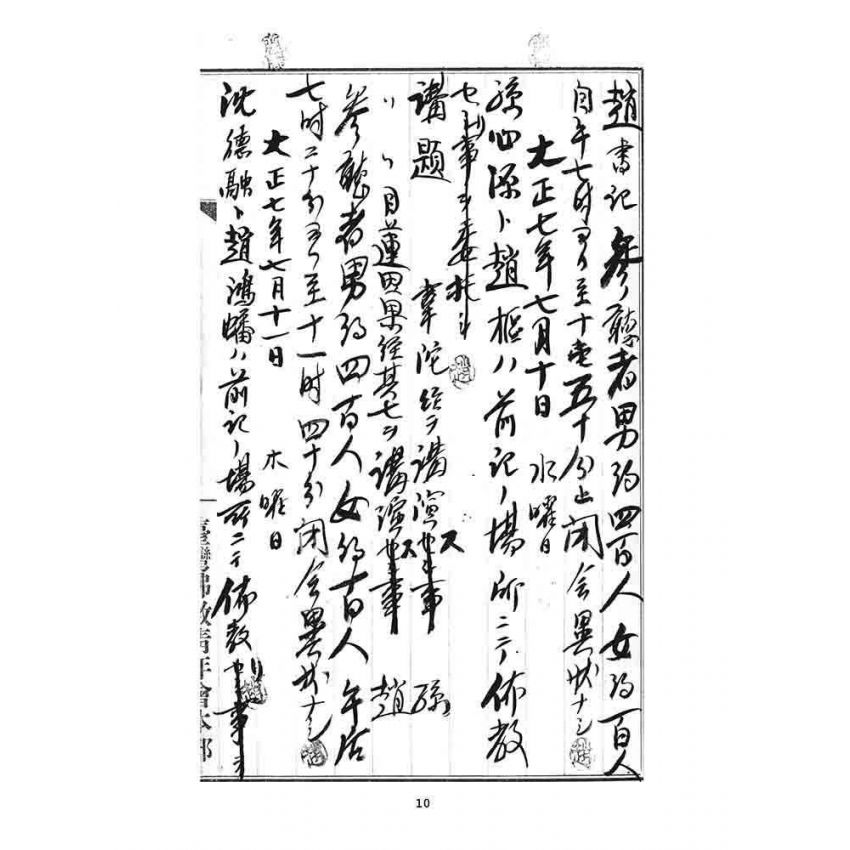 趙書記 參聽者男約四百人女約百人
自午七時ヨリ至十壱五十分止閉会異狀ナシ
大正七年七月十日 水曜日
孫心源ト趙樞ハ前記ノ場所ニテ佈教
講題 韋陀経ヲ講演ス 孫
〃 〃 目蓮因果経其七ヲ講演ス 趙
參聽者男約四百人女約百人午后
七時二十分ヨリ至十一時四十分閉会異狀ナシ
大正七年七月十一日 木曜日
沈德融ト趙鴻蟠ハ前記ノ場所ニテ佈教
臺灣佛教青年會本部
10